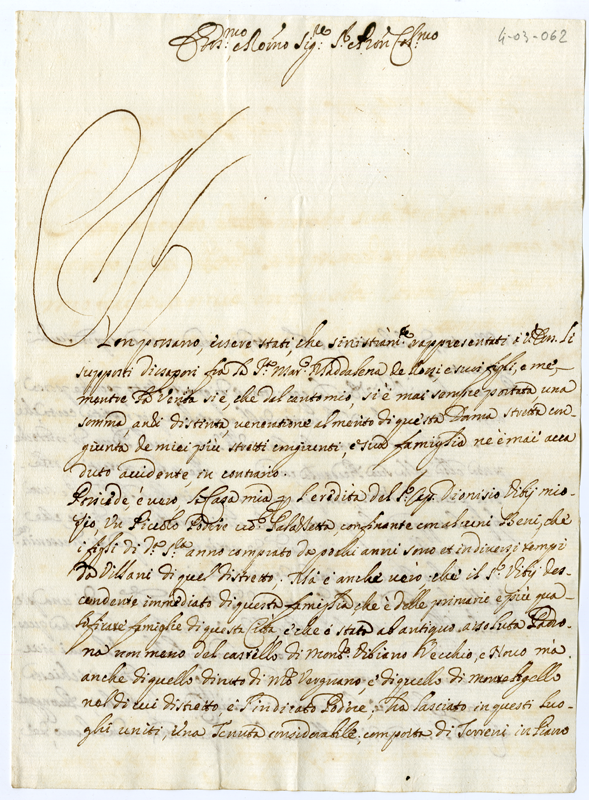 4-03-062
Non possano, essere stati, che sinistram.te rappresentati a V. Em. li
supposti dissapori fra la S.ra Mar.a Maddalena de Rossi e suoi figli, e me
mentre la Verità si è, che dal canto mio, si è mai sempre portata una
somma, anzi distinta, veneratione al merito di questa Dama stretta con
giunta de miei più stretti congiunti, e sua famiglia ne è mai acca
duto accidente in contrario.
Possiede, e vero la Casa mia p l'eredità del S.r Cap. Dionisio Vibij mio
Zio, un Piccolo Podere con alcuni Beni, che
i figli di d.a S.ra anno comprato da pochi anni sono et in diversi tempi
da Villani di quel distretto. Mà è anche vero che il S.r Vibij des
cendente immediato di questa famiglia che è delle primarie e più qua
lificate famiglie di questa Città, e che è stata ab antiquo assoluta Padro
na non meno del castello di Mont.e Vibiano Vecchio, e Novo mà
anche di quello diruto di M.te Vergnano, e di quello di monte
nel di cui distretto è l'indicato Podere, ha lasciato in questi luo
ghi uniti, una Tenuta considerabile, composta di Terreni in Piano